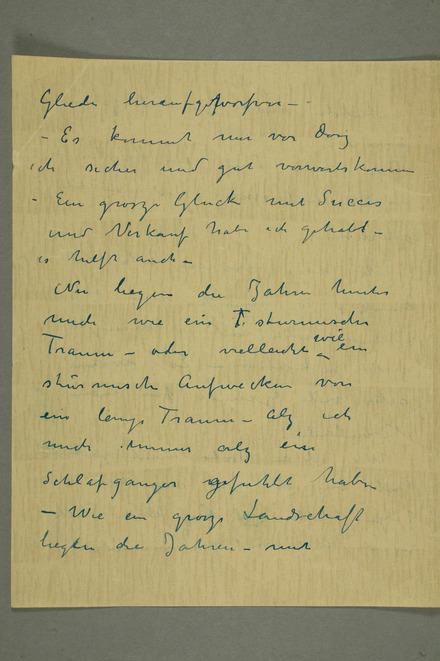 Glieder heraufgeworfen –
– Es kommt mir vor daz
ich sicher und gut vorwartskomm
– Ein grosze Gluck mit Succes
und Verkauf habe ich gehabt –
es helft auch –
Nu liegen die Jahren hinter
mich wie ein T. sturmische
Traum – oder vielleicht wie ein
stürmische Aufwecken von
ein lange Traum – Alz ich
mich immer alz ein
Schlafganger gefühlt habe
– Wie ein grosze Landschaft
liegen die Jahren – mit